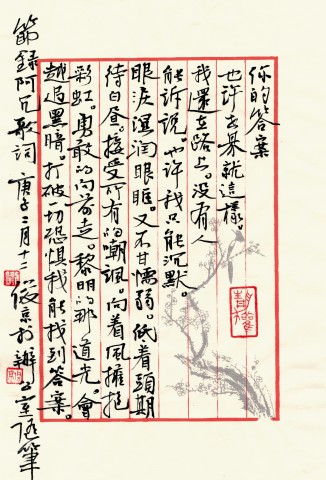 你的答案
也许世界就這樣。
我還在路上。没有人
能诉说。也许我只能沉默。
眼淚湿润眼眶。又不甘懦弱。低着頭期
待白昼。接受所有的嘲諷。向着風擁抱
彩虹。勇敢的向前走。黎明的那道光。會
越過黑暗。打破一切恐惧我能找到答案。
節録阿冗歌词 庚子二月十二 於辦公室随筆